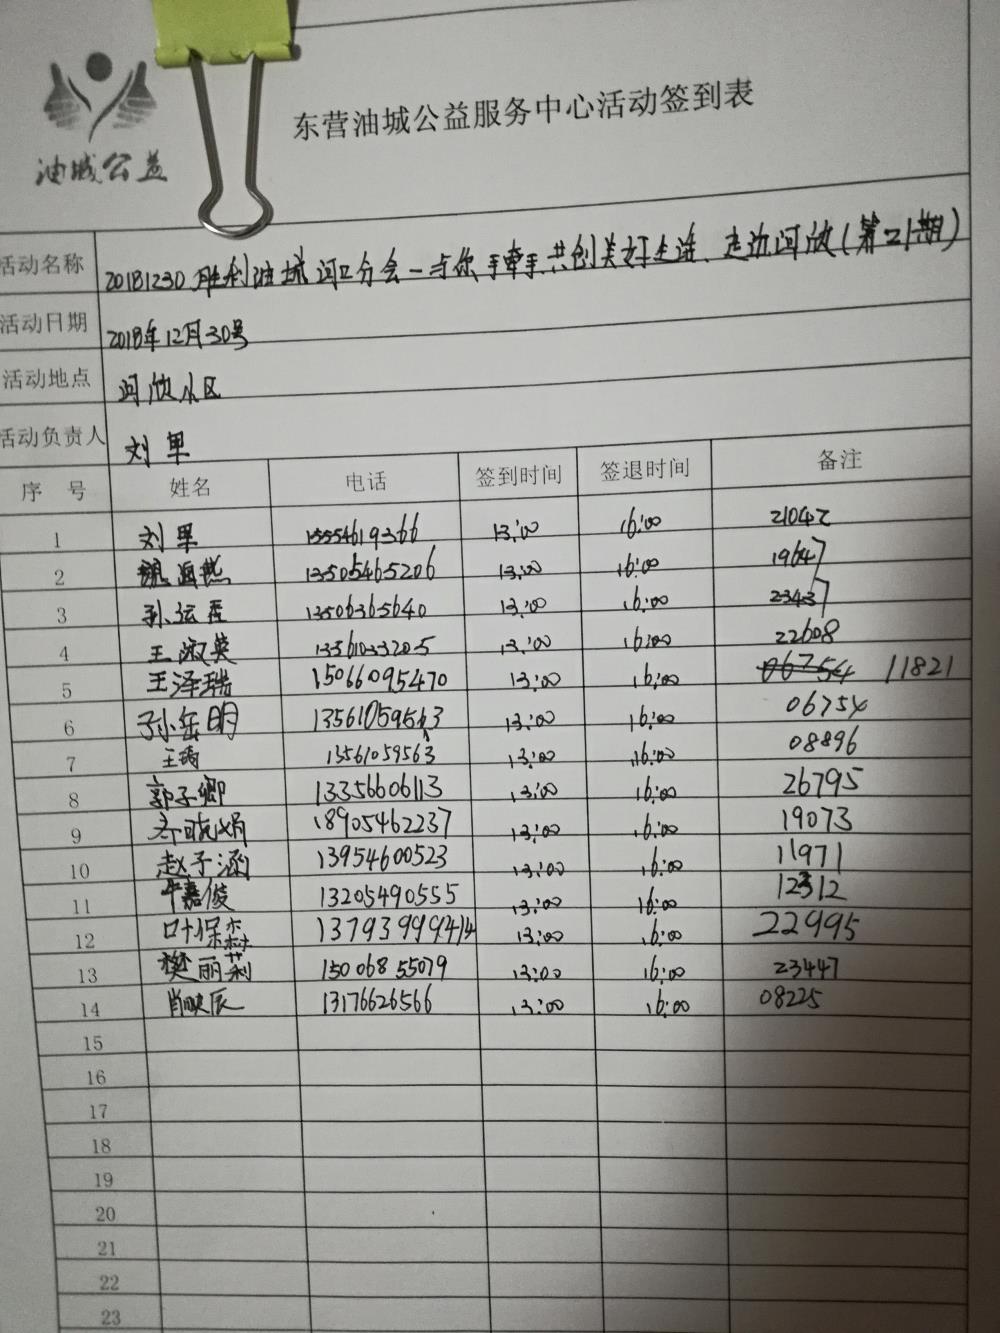 油城公益
东营油城公益服务中心活动签到表
活动名称 20181230胜利油城河口分会－与你手牵手共创美好生活、走访河欣(第21期)
活动日期 2018年12月30号
活动地点 河欣小区
活动负责人 刘军
序 号 姓名 电话 签到时间 签退时间 备注
1 刘军 15554619366 13:00 16:00 21042
2 海燕 13505465206 13:00 16:00 19647
3 孙运 13506365640 13:00 16:00 23437
4 王淑英 13561033205 13:00 16:00 22608
5 王泽瑞 15066095470 13:00 16:00 06754 11821
6 孙岳明 13561059563 13:00 16:00 06754
7 王 13561059563 13:00 16:00 08896
8 郭子卿 13356606113 13:00 16:00 26795
9 晓娟 18905462237 13:00 16:00 19073
10 赵子涵 13954600523 13:00 16:00 11971
11 牛嘉俊 13205490555 13:00 16:00 12312
12 叶保森 13:00 16:00 22995
13 樊丽莉 15006855079 13:00 16:00 23447
14 肖映辰 13176626566 13:00 16:00 08225
15
16
17
18
19
20
21
22
23